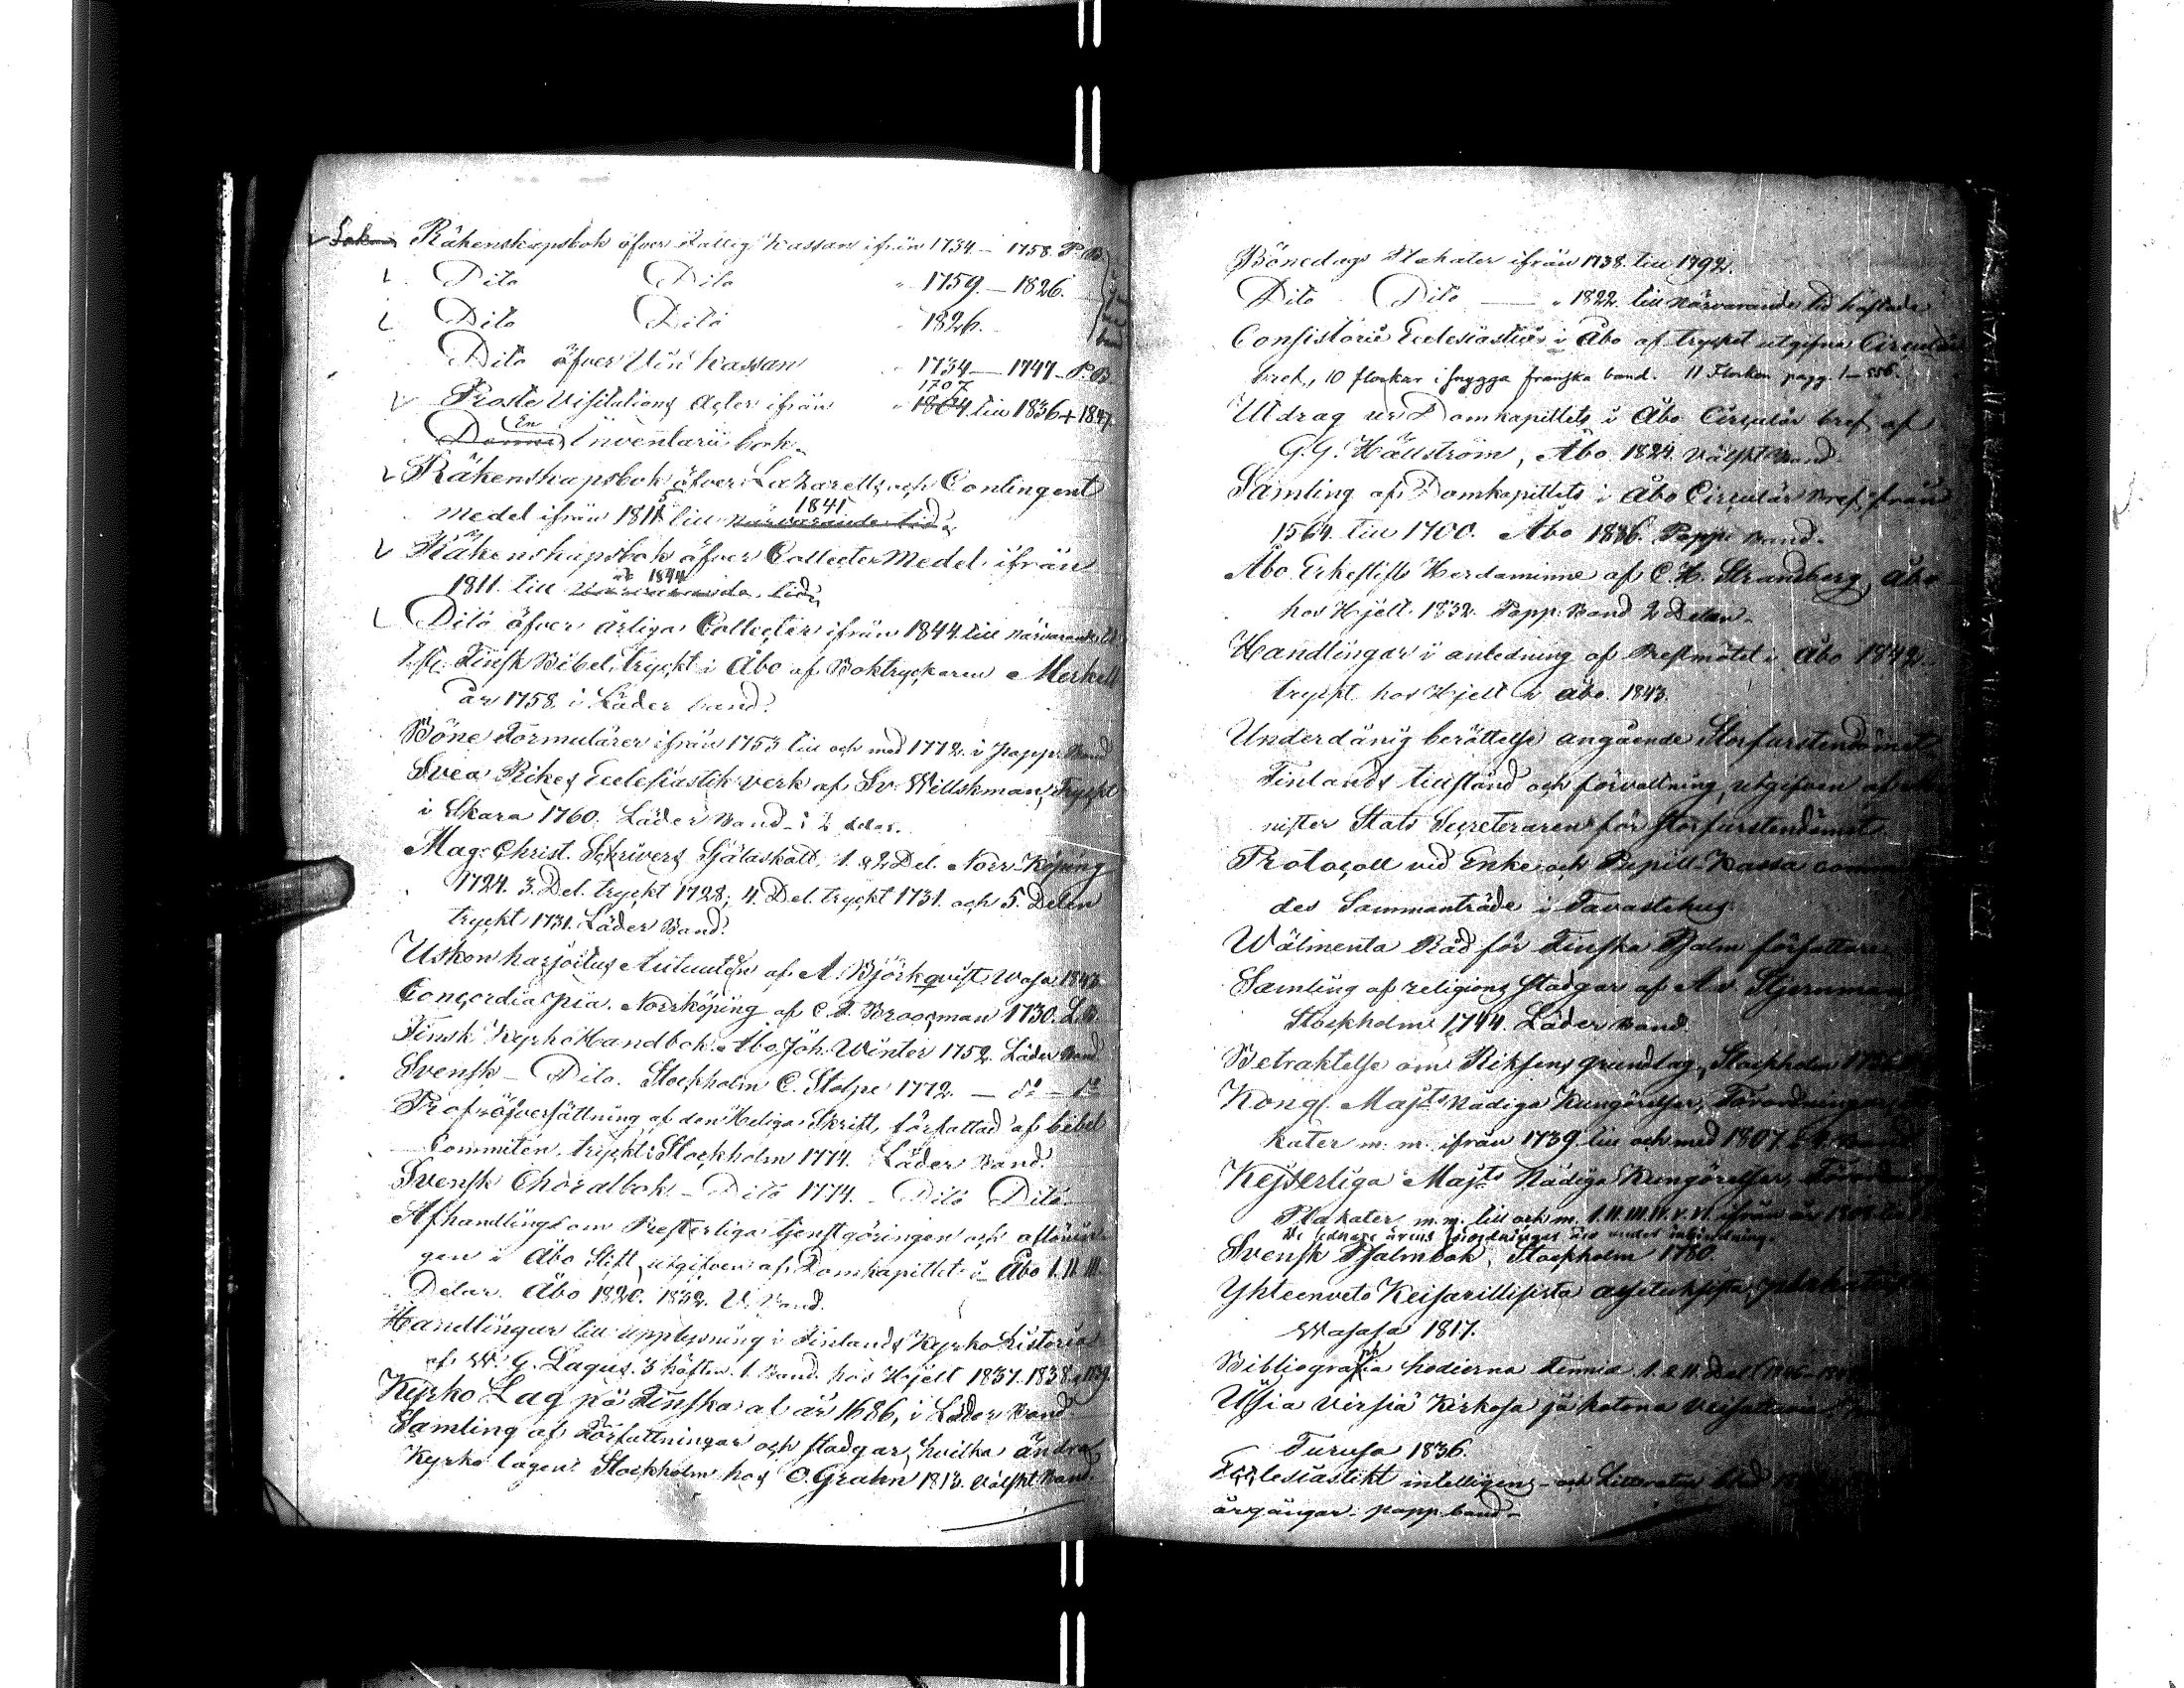 Räkenskapsbok öfver Fattig Kassan ifrån 1734 – 1758. P. B.
Dito Dito " 1759. – 1826.
Dito Dito " 1826.
Dito öfver Vin kassan " 1734 – 1747 – P. B.
Proste Visitations Acter ifrån " 1707 till 1836 + 1847.
En Inventarii bok.
Räkenskapsbok öfver Lazaretts och Contingent
medel ifrån 1811 till 1841.
Räkenskapsbok öfver Collecter Medel ifrån
1811. till 1844
Dito öfver årliga Collecter ifrån 1844. till närvarande tid
Finsk Bibel, tryckt i Åbo af Boktryckaren Merkell
år 1758. i Läder band.
Böne Formulärer ifrån 1753 till och med 1772. i papp. Band
Svea Rikes Ecclesiastik verk af Sv. Willskman, Tryckt
i Skara 1760. Läder Band i 2 delar.
Mag. Christ. Schrivers Själaskatt, 1. & 2. Del. Norr-Köping
1724. 3. Del. tryckt 1728; 4. Del. tryckt 1731. och 5. Delen
tryckt 1731. Läder Band.
Uskon harjoitus Autuuten af A. Björkqvist, Wasa 1843
Concordia pia. Norrköping af C. F. Broocman 1730. L. B.
Finsk KyrkoHandbok. Åbo, Joh. Winter 1752. Läder Band.
Svensk – Dito. Stockholm C. Stolpe 1772. – d:o – d:o
Prof-öfversättning af den Heliga Skrift, författad af bibel
Commiten, tryckt i Stockholm 1774. Läder Band.
Svensk Choralbok – Dito 1774. – Dito Dito
Afhandling om Presterliga tjenstgöringen och aflönin-
gen i Åbo Stift, utgifven af Domkapitlet i Åbo I. II. III.
Delar. Åbo 1820. 1832. V. Band.
Handlingar till upplysning i Finlands Kyrko historia
af W. G. Lagus. 3 häften. 1. Band. hos Hjelt 1837. 1838. 1839.
Kyrko Lag på Finska af år 1686, i Läder Band
Samling af Författningar och stadgar, hvilka ändra
Kyrko lagen. Stockholm hos O. Grahn 1813. Välskt Band.
Bönedags Plakater ifrån 1738. till 1792.
Dito Dito — " 1822. till närvarande tid häftade
Consistorii Ecclesiastici i Åbo af trycket utgifna Circulär
bref, 10 flockar i snygga franska band. 11 Flocken pagg. 1–556.
Utdrag ur Domkapitlets i Åbo Circulär bref af
G. G. Hällström, Åbo. 1824. Välskt Band.
Samling af Domkapitlets i Åbo Circulär Bref, från
1564. till 1700. Åbo 1836. Papp Band.
Åbo Erkestifts Herdaminne af C. H. Strandberg, Åbo
hos Hjelt. 1832. Papp. Band 2 Delar.
Handlingar i anledning af Prestmötet i Åbo 1842.
tryckt hos Hjelt i Åbo. 1843.
Underdånig berättelse angående Storfurstendömet
Finlands tillstånd och förvaltning, utgifven af
nister Stats Secreteraren för Storfurstendömet.
Protocoll vid Enke och Pupill-Kassa
des Sammanträde i Tavastehus.
Wälmenta Råd för Finska Psalm författare
Samling af religions stadgar af A. v. Stjernman
Stockholm 1744. Läder Band.
Betraktelse om Riksens grundlag, Stockholm
Kongl. Maj:ts Nådiga Kungörelser, Förordningar
kater m. m. ifrån 1739. till och med 1807.
Kejserliga Maj:ts Nådiga Kungörelser, Förordning
Plakater m. m. till och m. I. II. III. IV. V. VI. ifrån år 1808
De sednare årens förordningar äro under inbindning.
Svensk Psalmbok, Stockholm 1780.
Yhteenveto Keisarillisista asetuksista,
Wasasa 1817.
Bibliographia hodierna Fennia. I. & II. Del
Usia Virsiä Kirkosa ja kotona
Turusa 1836.
Ecclesiastikt intelligens- och Litteratur blad
årgångar. papp band.